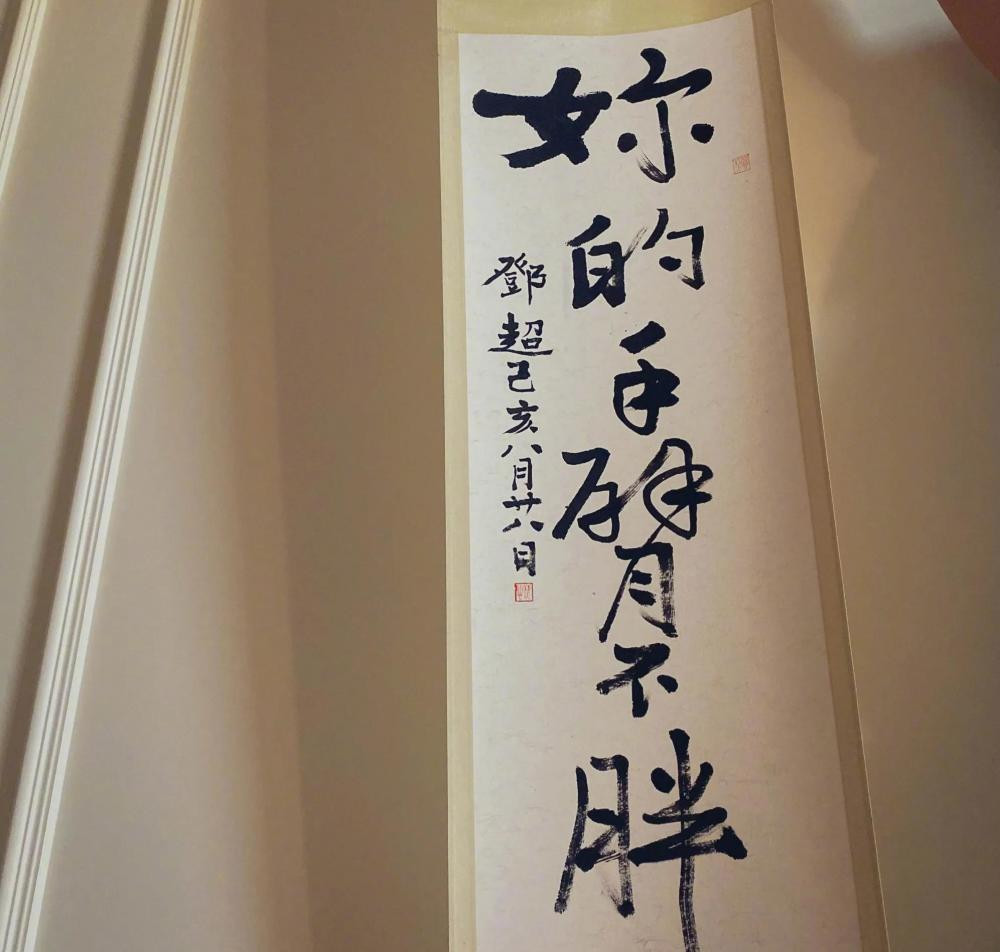 妳的手臂不胖
鄧超己亥八月廿八日